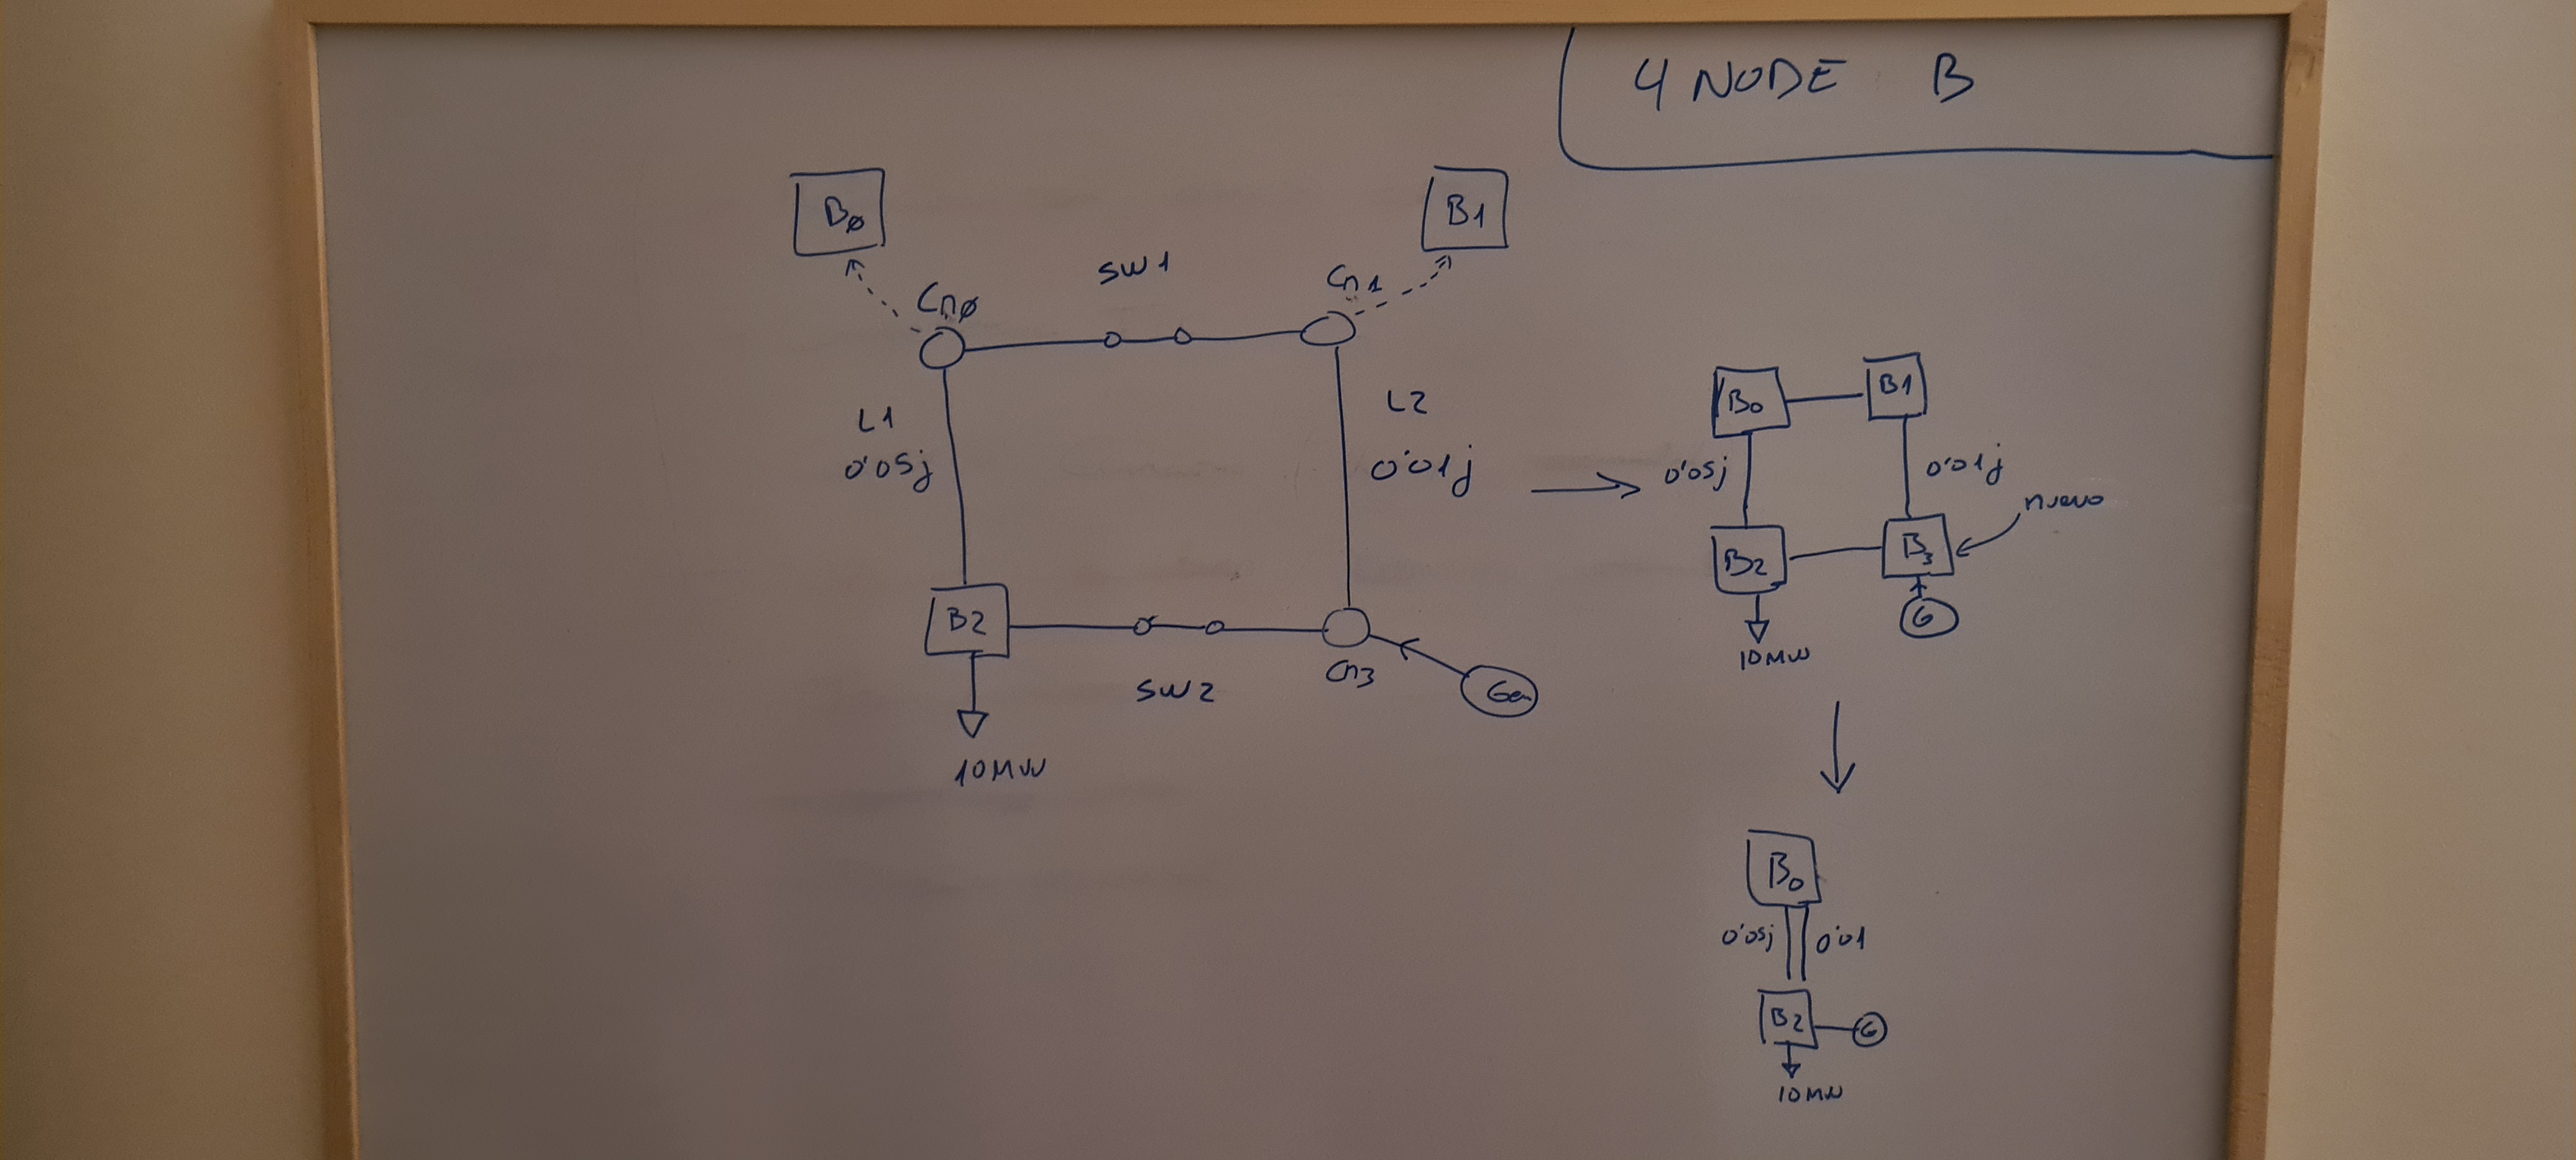 4 NODE B
Bø
B1
SW1
Cnø
Cn1
L1
0'05j
L2
0'01j
B2
SW2
Cn3
Gen
10MW
B0
B1
0'05j
0'01j
nuevo
B2
B3
G
10MW
B0
0'05j
0'01
B2
G
10MW